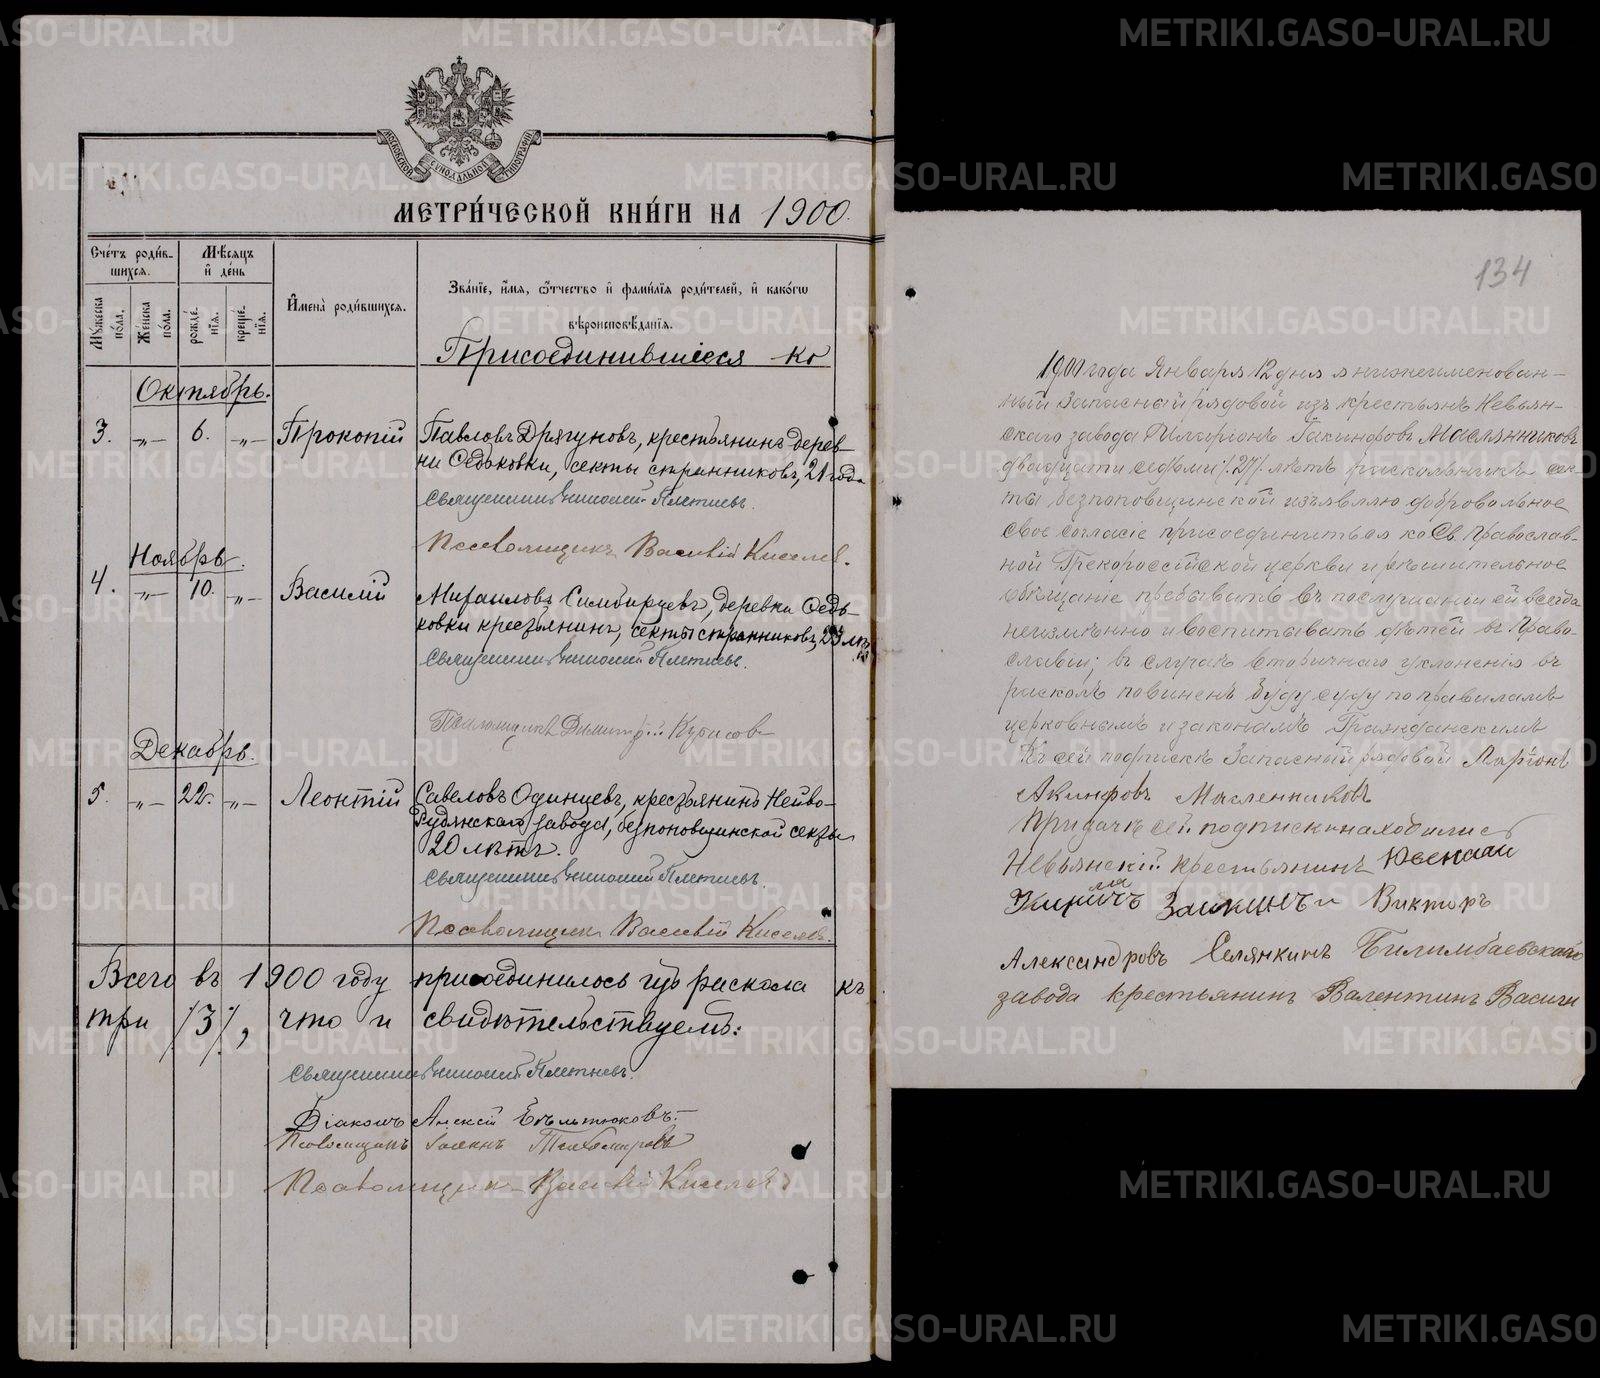 МОСКОВСКОЙ СУНОДАЛЬНОЙ ТИПОГРАФІИ
МЕТРИ́ЧЕСКОЙ КНИ́ГИ НА 1900.
Сче́тъ роди́в-
шихся.
Мѣсяцъ
и҆ де́нь
Мꙋжеска по́ла.
Же́нска по́ла.
рожде́нїѧ.
креще́нїѧ.
И҆мена̀ роди́вшихся.
Зва́нїе, и҆́мѧ, ѻ҆́тчество и҆ фами́лїѧ роди́телей, и҆ како́гѡ
вѣроисповѣ́данїѧ.
Присоединившіеся ко
Октябрь.
3. -„- 6. -„- Прокопій Павловъ Дрягуновъ, крестьянинъ дерев-
ни Седьковки, секты странниковъ, 21 года
Священникъ Плетневъ.
Псаломщикъ Василій Киселев.
Ноябрь.
4. -„- 10. -„- Василій Михаиловъ Симбирцевъ, деревни Седь-
ковки крестьянинъ, секты странниковъ, 23 лѣтъ
Священникъ Плетневъ.
Псаломщикъ Димитрій
Декабрь.
5. -„- 22. -„- Леонтій Савеловъ Одинцевъ, крестьянинъ Нейво-
Рудянскаго завода, безпоповщинской секты
20 лѣтъ.
Священникъ Плетневъ.
Псаломщикъ Василій Киселевъ.
Всего въ 1900 году присоединилось изъ раскола къ
три /3/, что и свидѣтельствуемъ:
Священникъ Плетневъ.
Діаконъ Алексій
Псаломщикъ Іоаннъ Тихомировъ
Псаломщикъ Василій Киселевъ
134
1901 года Января 12 дня я нижеименован-
ный Запасный рядовой изъ крестьянъ Невьян-
скаго завода Иларіонъ Гакинфовъ Маслянниковъ
двадцати седьми /27/ лѣтъ раскольникъ сек-
ты безпоповщинской изъявляю добровольное
свое согласіе присоединиться ко Св. Православ-
ной Грекороссійской церкви и рѣшительное
обѣщаніе пребывать въ послушаніи ей всегда
неизмѣнно и воспитывать дѣтей въ Право-
славіи; въ случаѣ вторичнаго уклоненія въ
расколъ повиненъ буду суду по правиламъ
церковнымъ и законамъ Гражданскимъ
Къ сей подпискѣ Запасный рядовой Ларіонъ
Акинфовъ Масленниковъ
При дачѣ сей подписки находились
Невьянскій крестьянинъ
Заикинъ и Викторъ
Александровъ Селянкинъ Билимбаевскаго
завода крестьянинъ Валентинъ Василь
METRIKI.GASO-URAL.RU